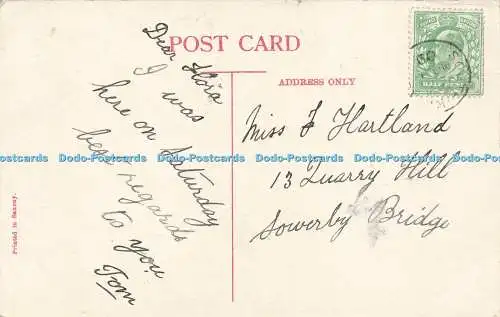 POST CARD
ADDRESS ONLY
HALF PENNY
Dear Flora
I was
here on Saturday
best regards
to you
Tom
Miss F Hartland
13 Quarry Hill
Sowerby Bridge
Printed in Saxony.
Dodo-Postcards Dodo-Postcards Dodo-Postcards Dodo-Postcards Dodo-Postcards